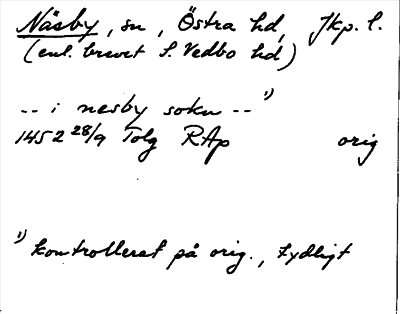 Näsby, sn, Östra hd, Jkp. l.
(enl. brevet S. Vedbo hd)
-- i nesby sokn -- 1)
1452 28/9 Tolg RAp orig
1) kontrollerat på orig., tydligt